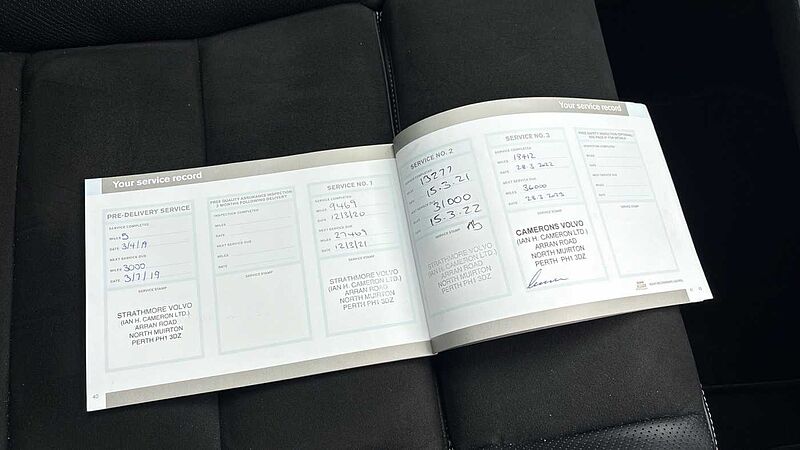 Your service record
PRE-DELIVERY SERVICE
SERVICE COMPLETED
MILES 9
DATE 3/4/19
NEXT SERVICE DUE
MILES 3000
DATE 3/7/19
SERVICE STAMP
STRATHMORE VOLVO
(IAN H. CAMERON LTD.)
ARRAN ROAD
NORTH MUIRTON
PERTH PH1 3DZ
40
FREE QUALITY ASSURANCE INSPECTION
3 MONTHS FOLLOWING DELIVERY
INSPECTION COMPLETED
MILES
DATE
NEXT SERVICE DUE
MILES
DATE
SERVICE STAMP
SERVICE NO. 1
SERVICE COMPLETED
MILES 9469
DATE 12/3/20
NEXT SERVICE DUE
MILES 27469
DATE 12/3/21
SERVICE STAMP
STRATHMORE VOLVO
(IAN H. CAMERON LTD.)
ARRAN ROAD
NORTH MUIRTON
PERTH PH1 3DZ
Your service record
SERVICE NO. 2
SERVICE COMPLETED
MILES 13277
DATE 15.3.21
NEXT SERVICE DUE
MILES 31000
DATE 15.3.22
SERVICE STAMP
STRATHMORE VOLVO
(IAN H. CAMERON LTD.)
ARRAN ROAD
NORTH MUIRTON
PERTH PH1 3DZ
SERVICE NO. 3
SERVICE COMPLETED
MILES 18412
DATE 28.3.2022
NEXT SERVICE DUE
MILES 36000
DATE 28.3.2023
SERVICE STAMP
CAMERONS VOLVO
(IAN H. CAMERON LTD.)
ARRAN ROAD
NORTH MUIRTON
PERTH PH1 3DZ
FREE SAFETY INSPECTION (OPTIONAL)
INSPECTION COMPLETED
MILES
DATE
NEXT SERVICE DUE
MILES
DATE
SERVICE STAMP